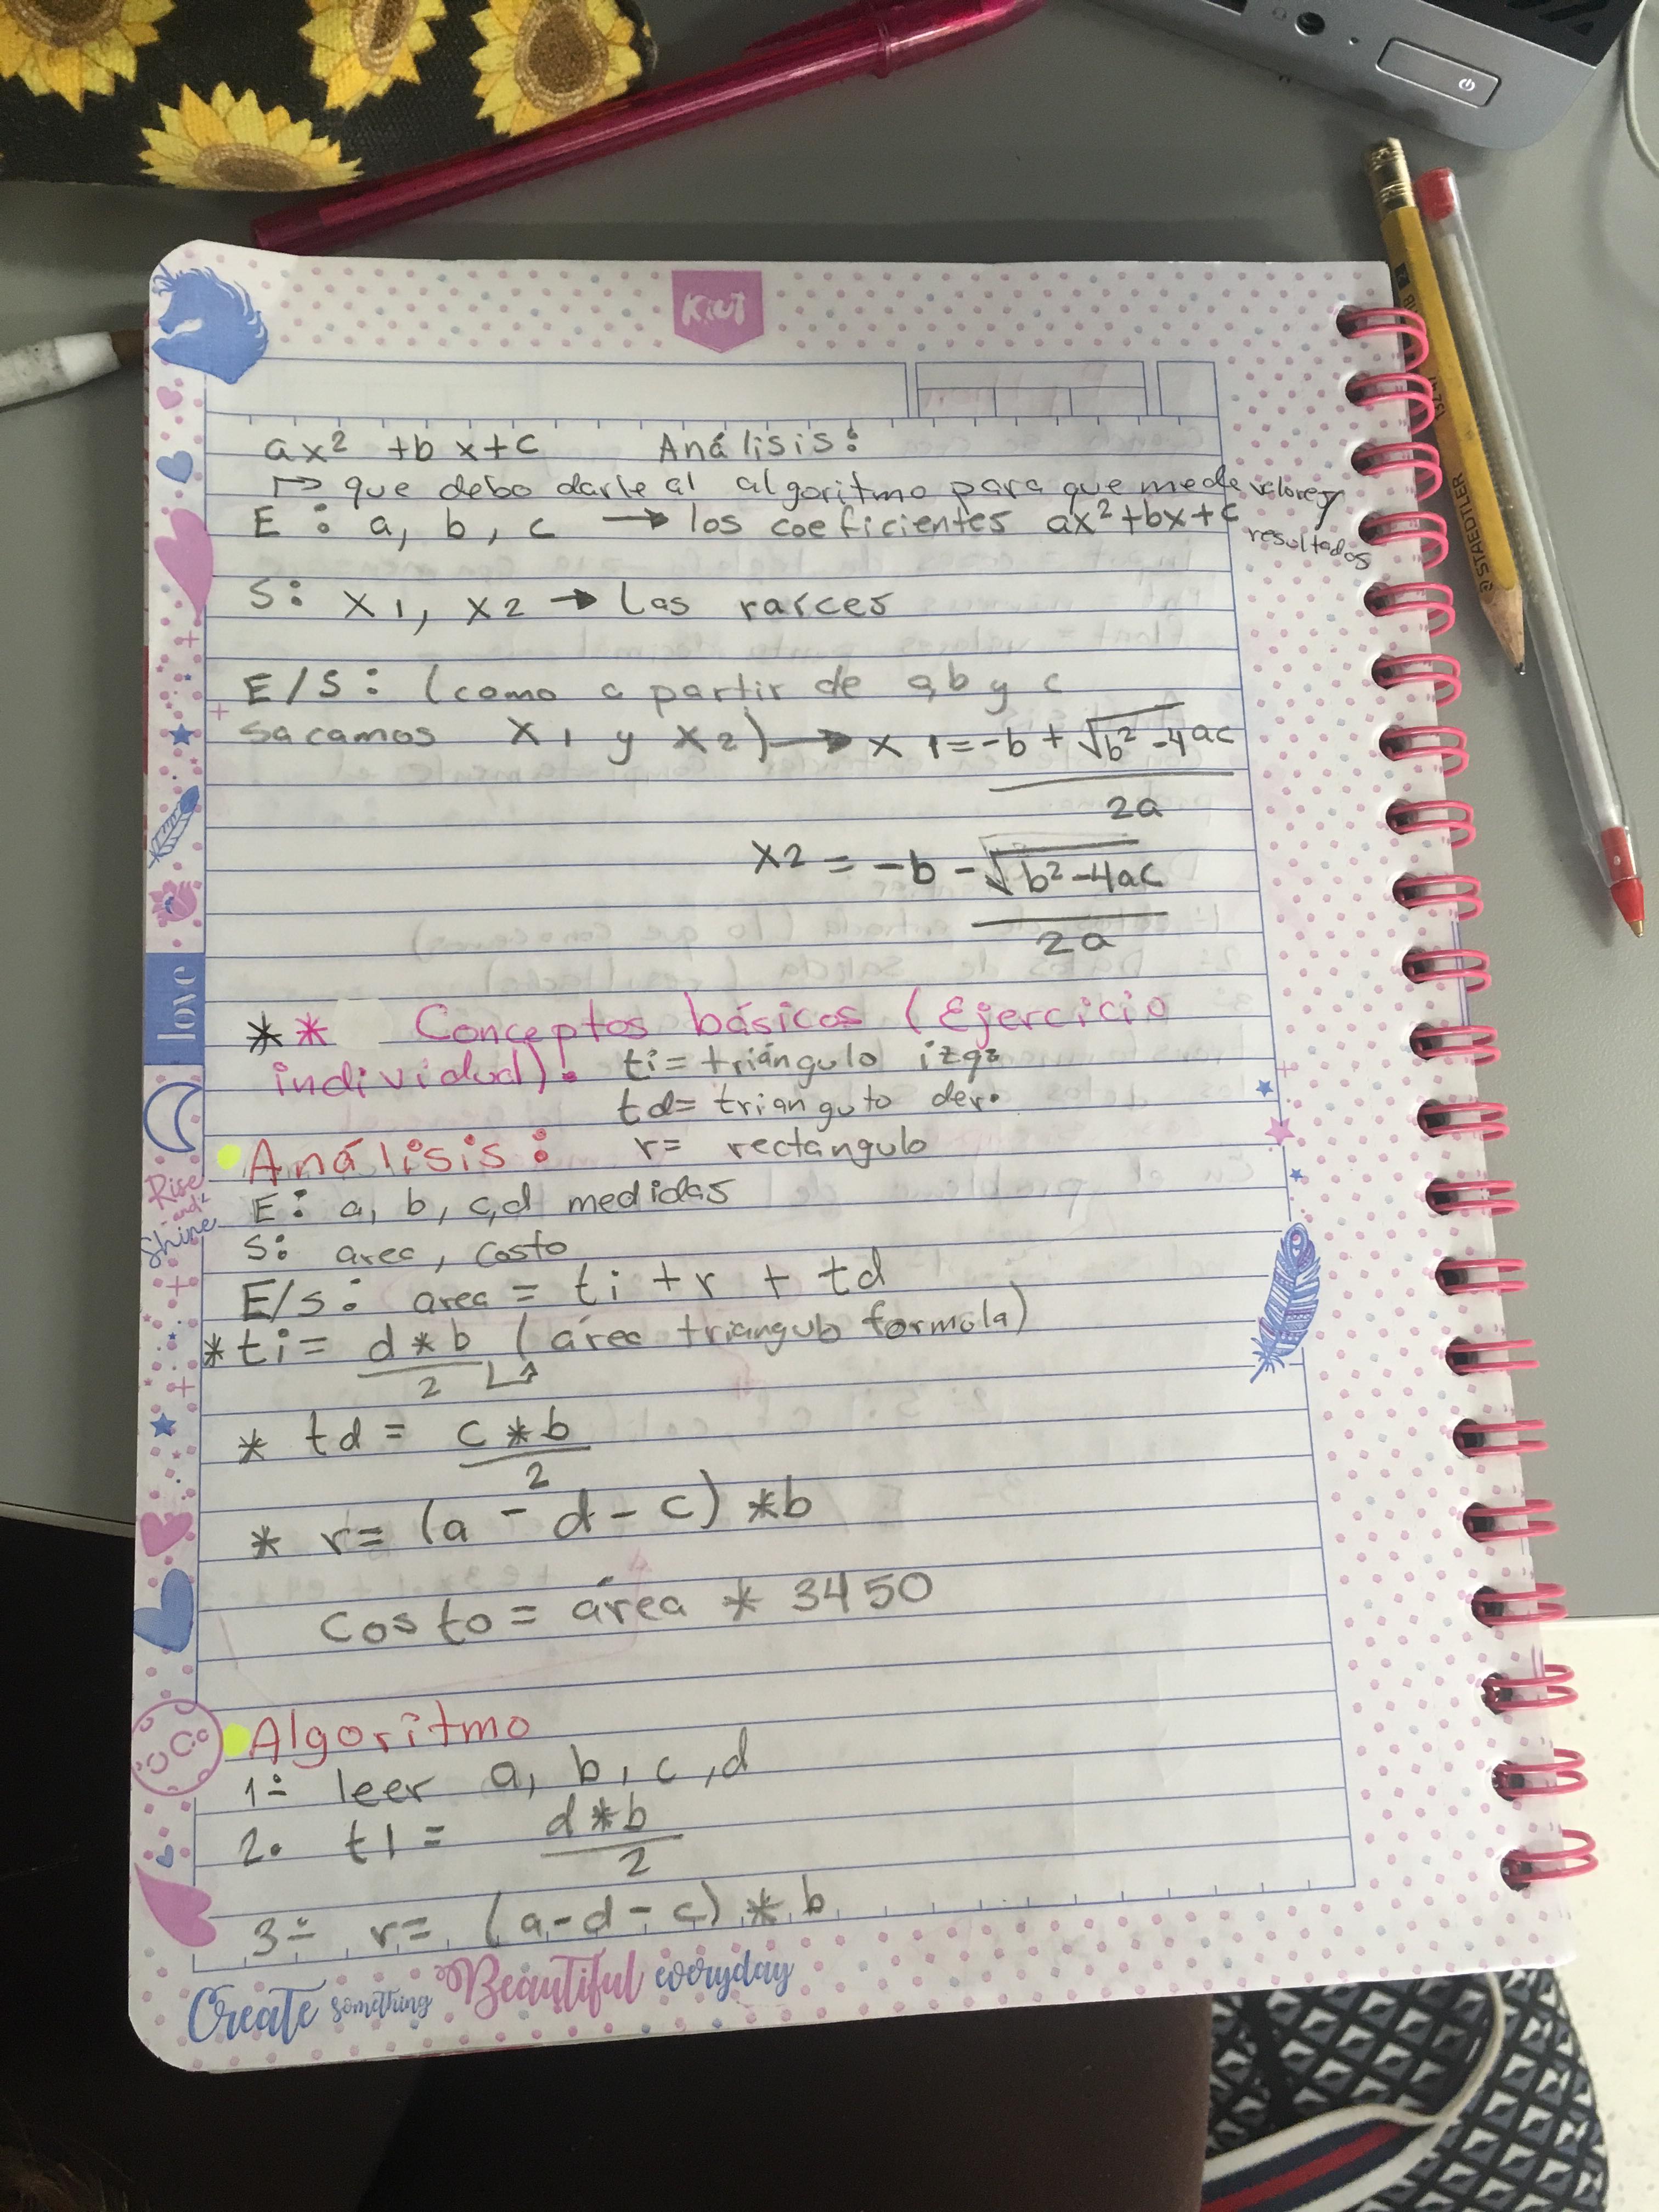 Kiut
ax² + bx + c Análisis:
↳ que debo darle al algoritmo para que me de valores y resultados
E: a, b, c → los coeficientes ax²+bx+c
S: x1, x2 → Las raíces
E/S: (como a partir de a,b y c
sacamos x1 y x2) → x1 = -b + √b² -4ac
2a
x2 = -b - √b²-4ac
2a
** Conceptos básicos (Ejercicio
individual): ti = triángulo izq:
td = triangulo der.
• Análisis: r = rectangulo
E: a, b, c,d medidas
S: area, costo
E/s: area = ti + r + td
* ti = d * b (área triangulo formula)
2
* td = c * b
2
* r = (a - d - c) * b
Costo = área * 3450
• Algoritmo
1- leer a, b, c, d
2. t1 = d * b
2
3- r = (a-d-c) * b
love
Rise
and
Shine
Create something Beautiful everyday
STAEDTLER